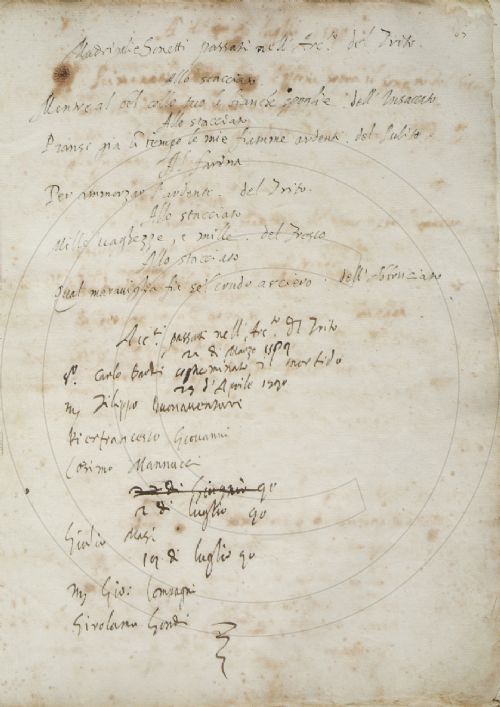 Madriali e Sonetti passati nell'Arc.to del Trito
Allo stacciato
Mentre al bel collo suo i bianche spoglie dell'Insaccato
Allo stacciato
Piansi già un tempo le mie fiamme ardenti del Sollo
Al farina
Per ammorzar l'ardente del Trito.
Allo stacciato
Mille vaghezze, e mille del Fresco
Allo stacciato
Qual maraviglia fia se'l crudo arciero dell'Abbruciato
Acc.ti passati nell'Arc.to del Trito
22 di Marzo 1589
S.r Carlo Bardi cognominato il
23 d'Aprile 1590
M. Filippo Buonaventuri
Pierfrancesco Giovanni
Cosimo Mannucci
22 di Giugno 90
2 di luglio 90
Giulio Masi
19 di luglio 90
M. Gio: Compagni
Girolamo Gondi